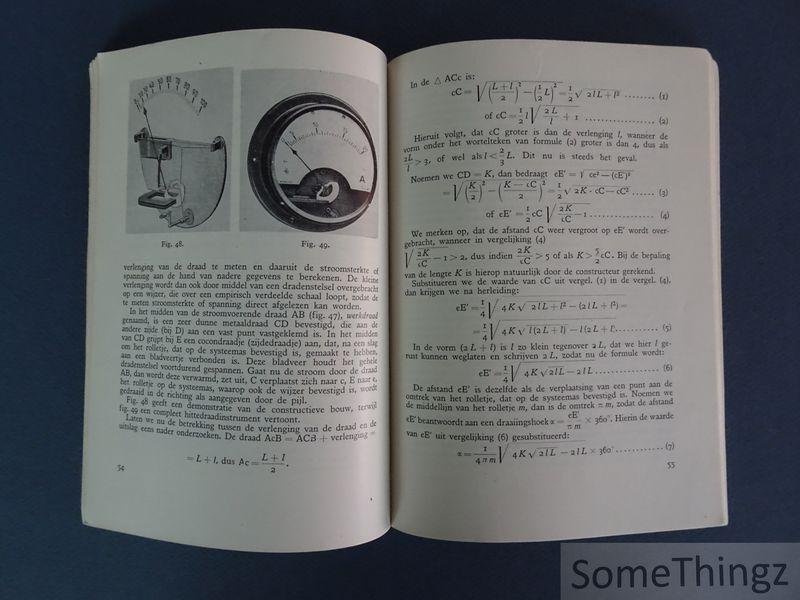 Fig. 48.
Fig. 49.
A
verlenging van de draad te meten en daaruit de stroomsterkte of
spanning aan de hand van nadere gegevens te berekenen. De kleine
verlenging wordt dan ook door middel van een dradenstelsel overgebracht
op een wijzer, die over een empirisch verdeelde schaal loopt, zodat de
te meten stroomsterkte of spanning direct afgelezen kan worden.
In het midden van de stroomvoerende draad AB (fig. 47), werkdraad
genaamd, is een zeer dunne metaaldraad CD bevestigd, die aan de
andere zijde (bij D) aan een vast punt vastgeklemd is. In het midden
van CD grijpt bij E een cocondraadje (zijdedraadje) aan, dat, na een slag
om het rolletje, dat op de systeemas bevestigd is, gemaakt te hebben,
aan een bladveertje verbonden is. Deze bladveer houdt het gehele
dradenstelsel voortdurend gespannen. Gaat nu de stroom door de draad
AB, dan wordt deze verwarmd, zet uit, C verplaatst zich naar c, E naar e,
het rolletje op de systeemas, waarop ook de wijzer bevestigd is, wordt
gedraaid in de richting als aangegeven door de pijl.
Fig. 48 geeft een demonstratie van de constructieve bouw, terwijl
fig. 49 een compleet hittedraadinstrument vertoont.
Laten we nu de betrekking tussen de verlenging van de draad en de
uitslag eens nader onderzoeken. De draad AcB = ACB + verlenging =
= L + l, dus Ac = (L + l)/2.
54
In de △ ACc is:
cC = √((L + l)/2)² − (½L)² = ½√ 2lL + l² ........ (1)
of cC = ½ l √ 2L/l + 1 ........ (2)
Hieruit volgt, dat cC groter is dan de verlenging l, wanneer de
vorm onder het wortelteken van formule (2) groter is dan 4, dus als
2L/l > 3, of wel als l < ⅔ L. Dit nu is steeds het geval.
Noemen we CD = K, dan bedraagt eE' = √ ce² − (cE')²
= √(K/2)² − ((K − cC)/2)² = ½√ 2K · cC − cC² ...... (3)
of eE' = ½ cC √ 2K/cC − 1 ........ (4)
We merken op, dat de afstand cC weer vergroot op eE' wordt over-
gebracht, wanneer in vergelijking (4)
√ 2K/cC − 1 > 2, dus indien 2K/cC > 5 of als K > 5/2 cC. Bij de bepaling
van de lengte K is hierop natuurlijk door de constructeur gerekend.
Substitueren we de waarde van cC uit vergel. (1) in de vergel. (4),
dan krijgen we na herleiding:
eE' = ¼√ 4K√ 2lL + l² − (2lL + l²) =
= ¼√ 4K√ l(2L + l) − l(2L + l) ........ (5)
In de vorm (2L + l) is l zo klein tegenover 2L, dat we hier l ge-
rust kunnen weglaten en schrijven 2L, zodat nu de formule wordt:
eE' = ¼√ 4K√ 2lL − 2lL ........ (6)
De afstand eE' is dezelfde als de verplaatsing van een punt aan de
omtrek van het rolletje, dat op de systeemas bevestigd is. Noemen we
de middellijn van het rolletje m, dan is de omtrek π m, zodat de afstand
eE' beantwoordt aan een draaiingshoek α = eE'/π m × 360°. Hierin de waarde
van eE' uit vergelijking (6) gesubstitueerd:
α = 1/4πm √ 4K√ 2lL − 2lL × 360° ........ (7)
55
SomeThingz